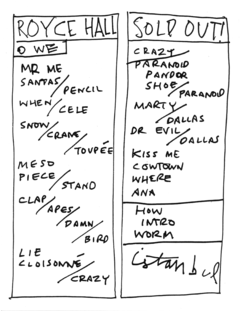 ROYCE HALL
O WE
MR ME
SANTAS/
PENCIL
WHEN/
CELE
SNOW/
CRANE/
TOUPÉE
MESO
PIECE/
STAND
CLAP/
APES/
DAMN/
BIRD
LIE
CLOISONNÉ/
CRAZY
SOLD OUT!
CRAZY/
PARANOID
PANDOR
SHOE/
PARANOID
MARTY/
DALLAS
DR EVIL/
DALLAS
KISS ME
COWTOWN
WHERE
ANA
HOW
INTRO
WORM
istanbul